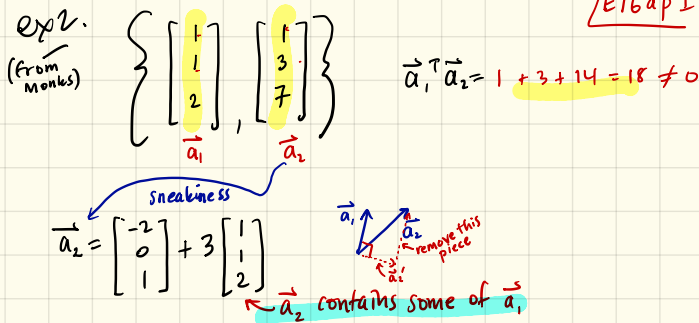 ex2.
(from Monks)
{ [1 1 2], [1 3 7] }
a⃗₁ a⃗₂
a⃗₁ᵀ a⃗₂ = 1 + 3 + 14 = 18 ≠ 0
sneakiness
a⃗₂ = [-2 0 1] + 3 [1 1 2]
a⃗₁
a⃗₂
remove this piece
a⃗₂'
a⃗₂ contains some of a⃗₁